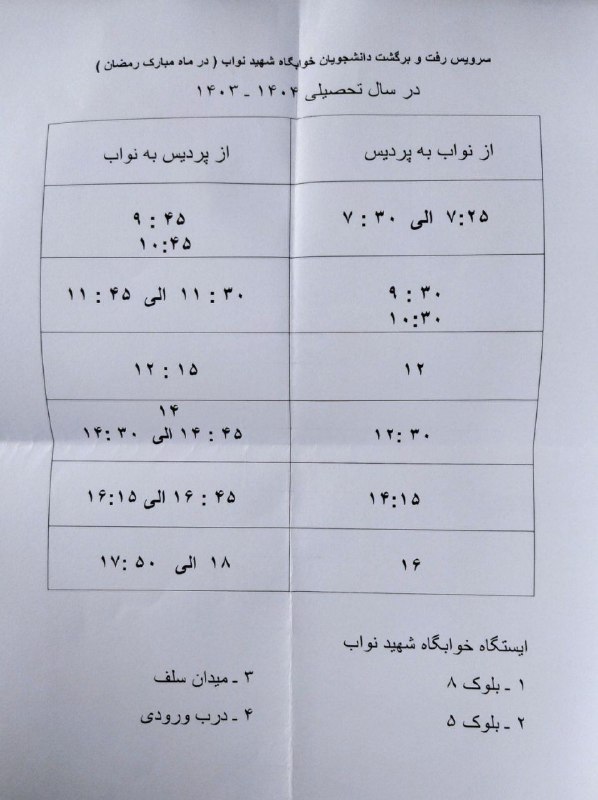 سرویس رفت و برگشت دانشجویان خوابگاه شهید نواب ( در ماه مبارک رمضان )
در سال تحصیلی ۱۴۰۴ ـ ۱۴۰۳
از نواب به پردیس
از پردیس به نواب
۷:۲۵ الی ۷ : ۳۰
۹ : ۴۵
۱۰:۴۵
۹ : ۳۰
۱۰:۳۰
۱۱ : ۳۰ الی ۱۱ : ۴۵
۱۲
۱۲ : ۱۵
۱۲: ۳۰
۱۴
۱۴:۳۰ الی ۱۴ : ۴۵
۱۴:۱۵
۱۶:۱۵ الی ۱۶ : ۴۵
۱۶
۱۷: ۵۰ الی ۱۸
ایستگاه خوابگاه شهید نواب
۱ ـ بلوک ۸
۳ ـ میدان سلف
۲ ـ بلوک ۵
۴ ـ درب ورودی